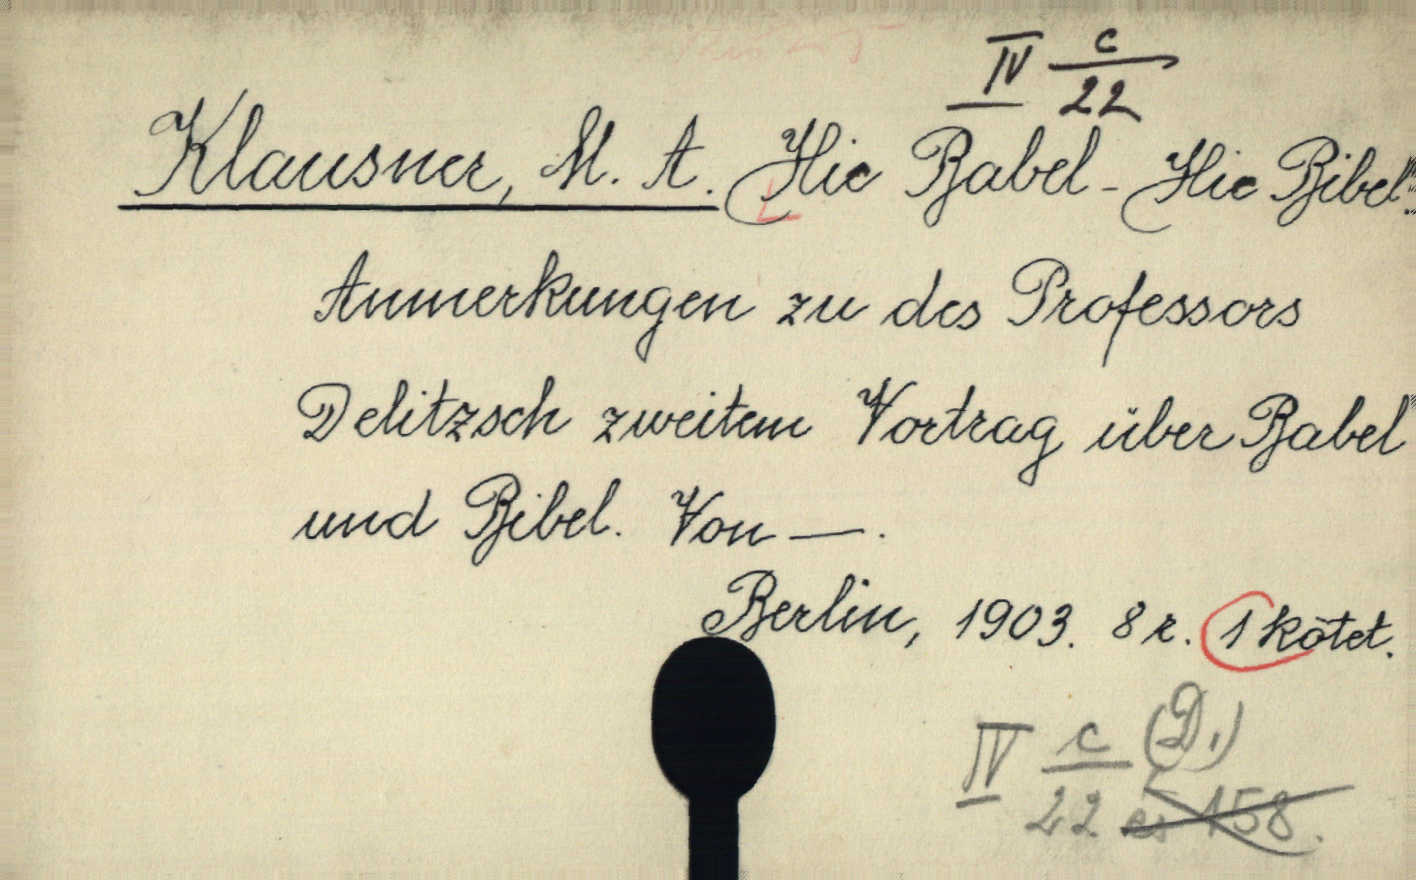 IV c/22
Klausner, M. A. Hie Babel - Hie Bibel!
Anmerkungen zu des Professors
Delitzsch zweitem Vortrag über Babel
und Bibel. Von —.
Berlin, 1903. 8 r. 1 kötet.
IV c/22 (D.)
és 158.